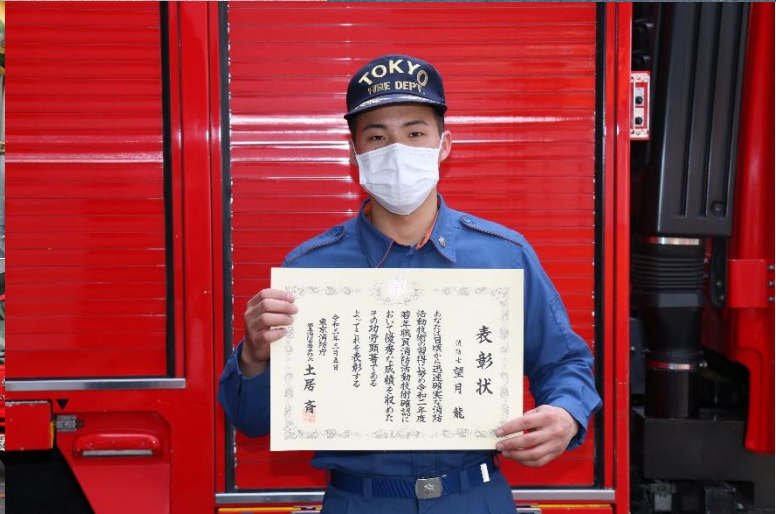 TOKYO
FIRE DEPT.
表彰状
消防士 望月 龍
あなたは日頃から迅速確実な消防
活動技術の習得に努め令和二年度
若年職員消防活動技術確認に
おいて優秀な成績を収めた
その功労顕著である
よってこれを表彰する
東京消防庁
土居 斉